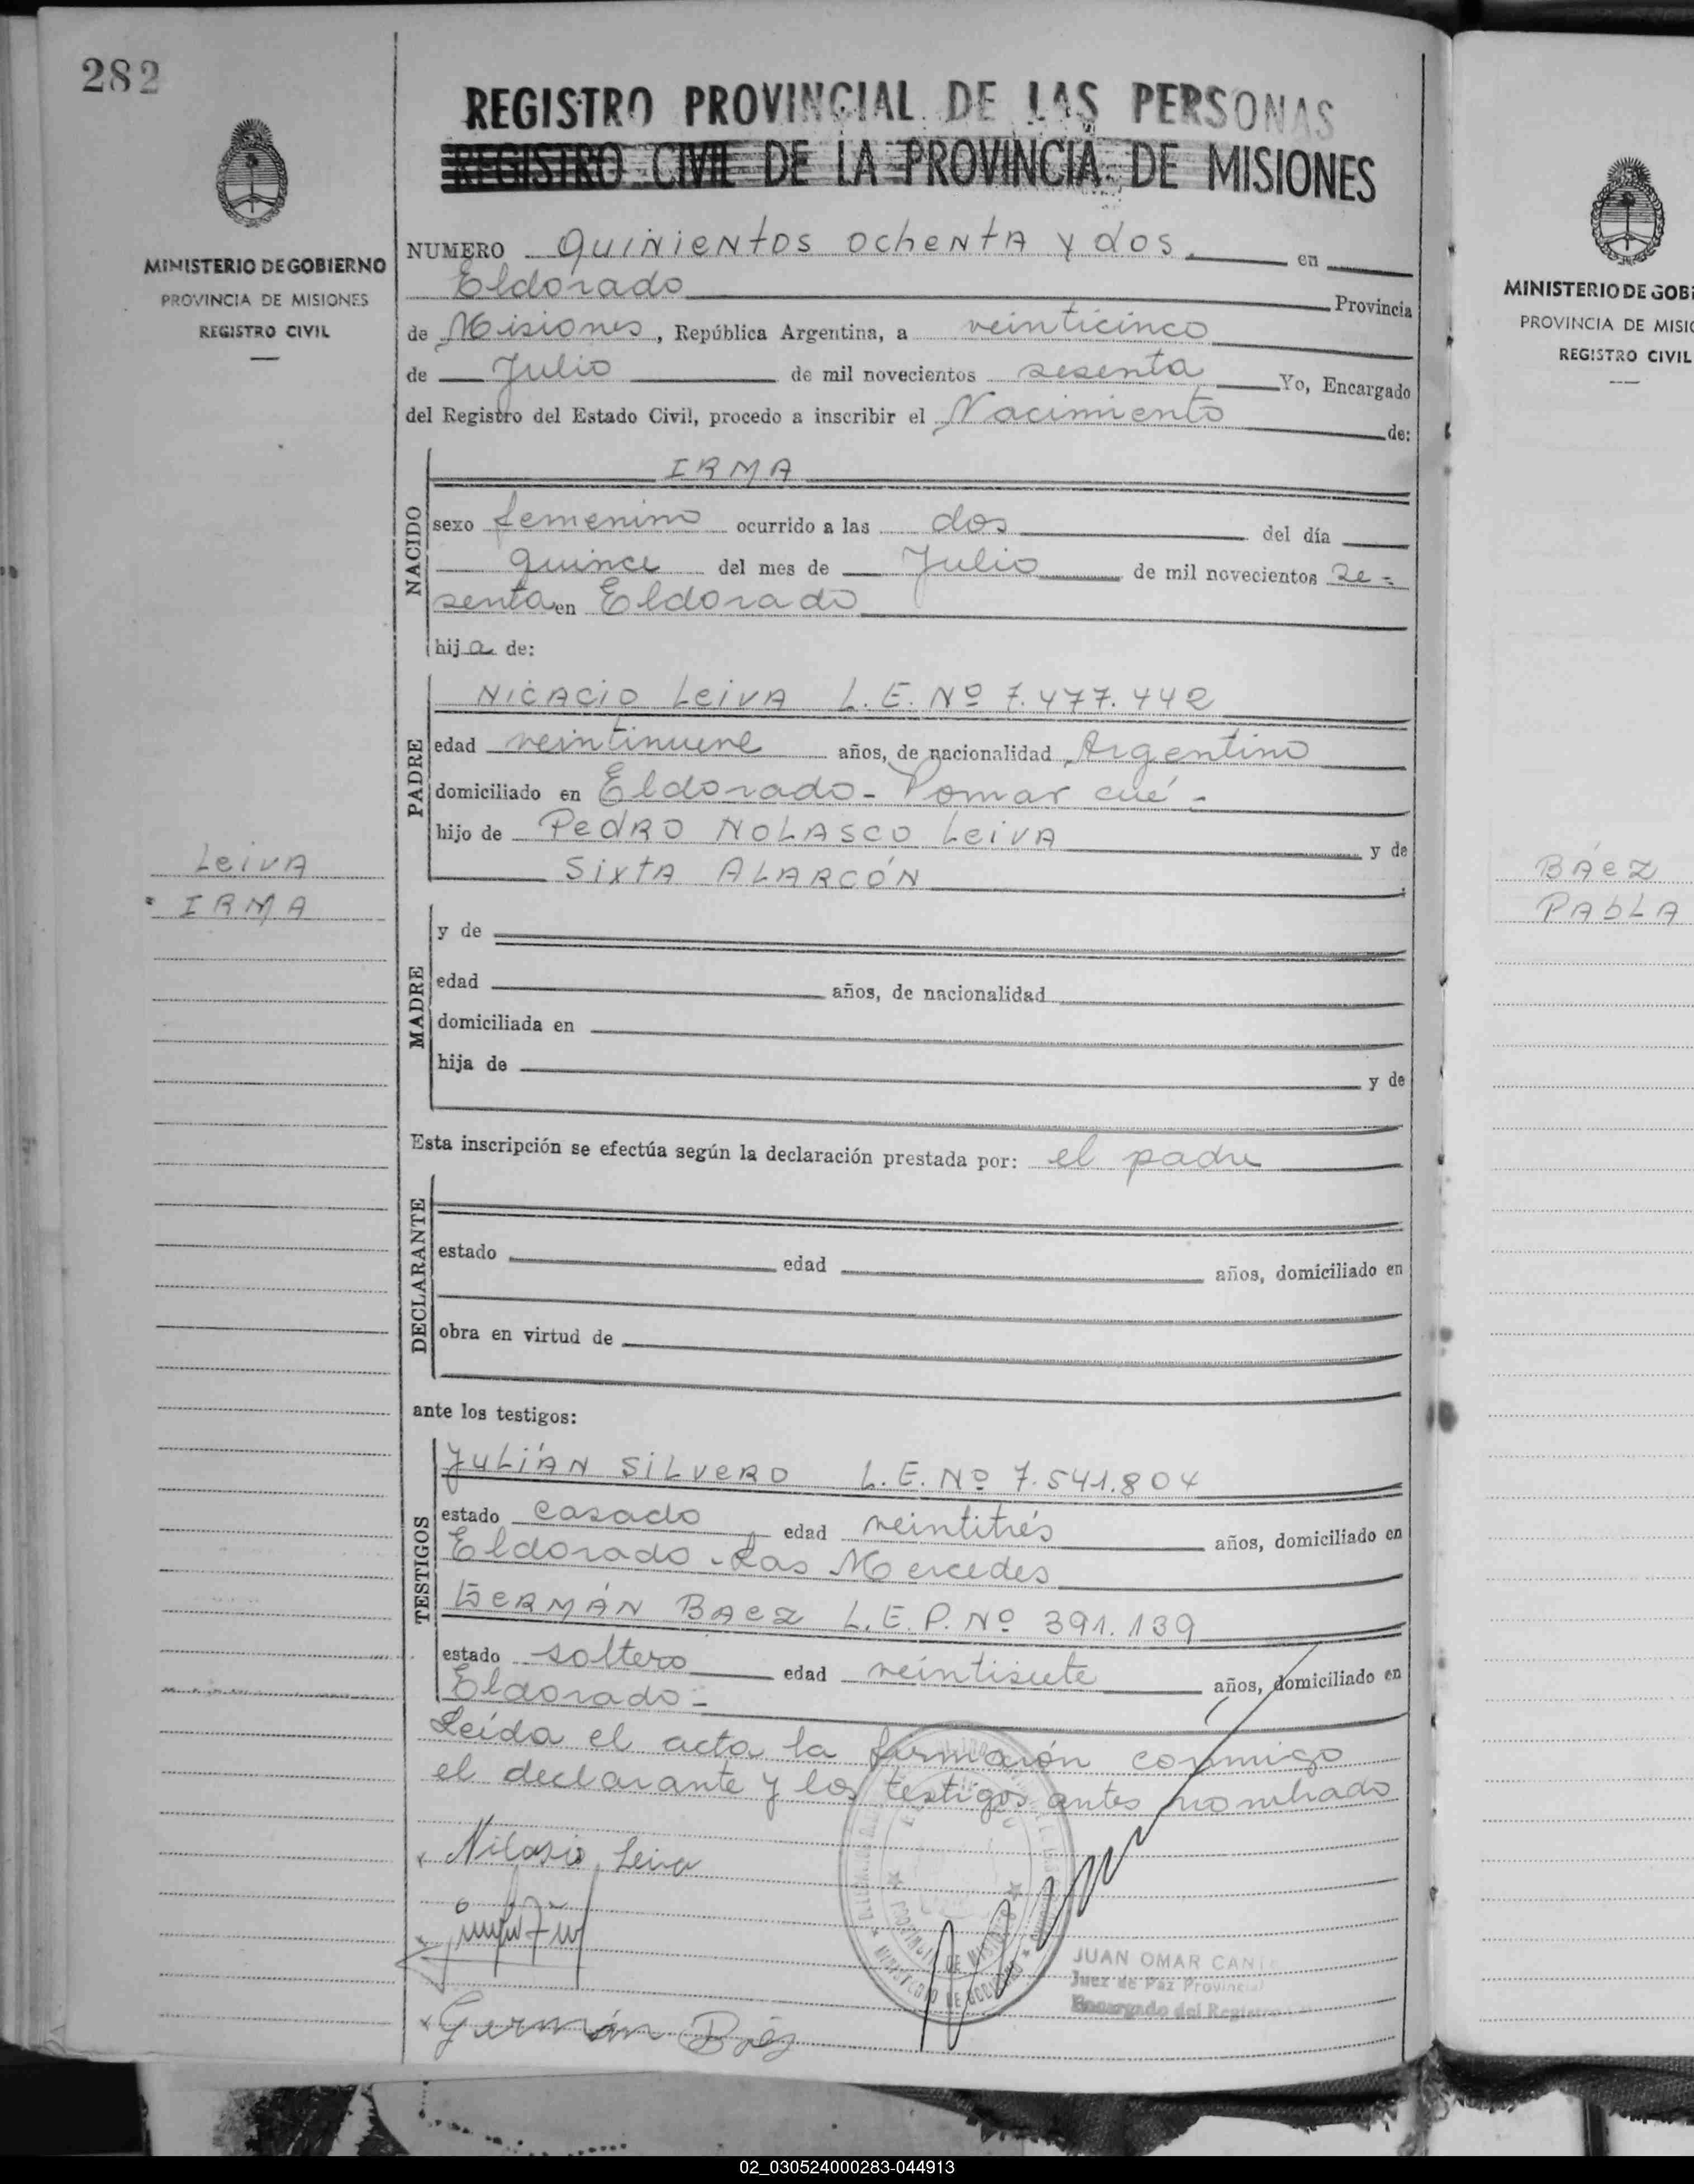 282
REGISTRO PROVINCIAL DE LAS PERSONAS
REGISTRO CIVIL DE LA PROVINCIA DE MISIONES
MINISTERIO DE GOBIERNO
PROVINCIA DE MISIONES
REGISTRO CIVIL
NUMERO Quinientos ochenta y dos en
Eldorado Provincia
de Misiones, República Argentina, a veinticinco
de Julio de mil novecientos sesenta Yo, Encargado
del Registro del Estado Civil, procedo a inscribir el Nacimiento de:
NACIDO
IRMA
sexo femenino ocurrido a las dos del día
quince del mes de Julio de mil novecientos se-
senta en Eldorado
hija de:
PADRE
NICACIO LEIVA L.E. Nº 7.477.442
edad veintinueve años, de nacionalidad Argentino
domiciliado en Eldorado - Pomar cué -
hijo de PEDRO NOLASCO LEIVA y de
SIXTA ALARCÓN
LEIVA
IRMA
MADRE
y de
edad años, de nacionalidad
domiciliada en
hija de y de
Esta inscripción se efectúa según la declaración prestada por: el padre
DECLARANTE
estado edad años, domiciliado en
obra en virtud de
ante los testigos:
TESTIGOS
JULIÁN SILVERO L.E. Nº 7.541.804
estado casado edad veintitrés años, domiciliado en
Eldorado - Las Mercedes
GERMÁN BAEZ L.E.P. Nº 391.139
estado soltero edad veintisiete años, domiciliado en
Eldorado -
Leída el acta la firmarón conmigo
el declarante y los testigos antes nombrado
Nicasio Leiva
Germán Báez
PROVINCIA DE MISIONES
MINISTERIO DE GOBIERNO
JUAN OMAR
Juez de Paz Provincial
Encargado del Registro
MINISTERIO DE GOBI
PROVINCIA DE MISIO
REGISTRO CIVIL
BÁEZ
PABLA
02_030524000283-044913